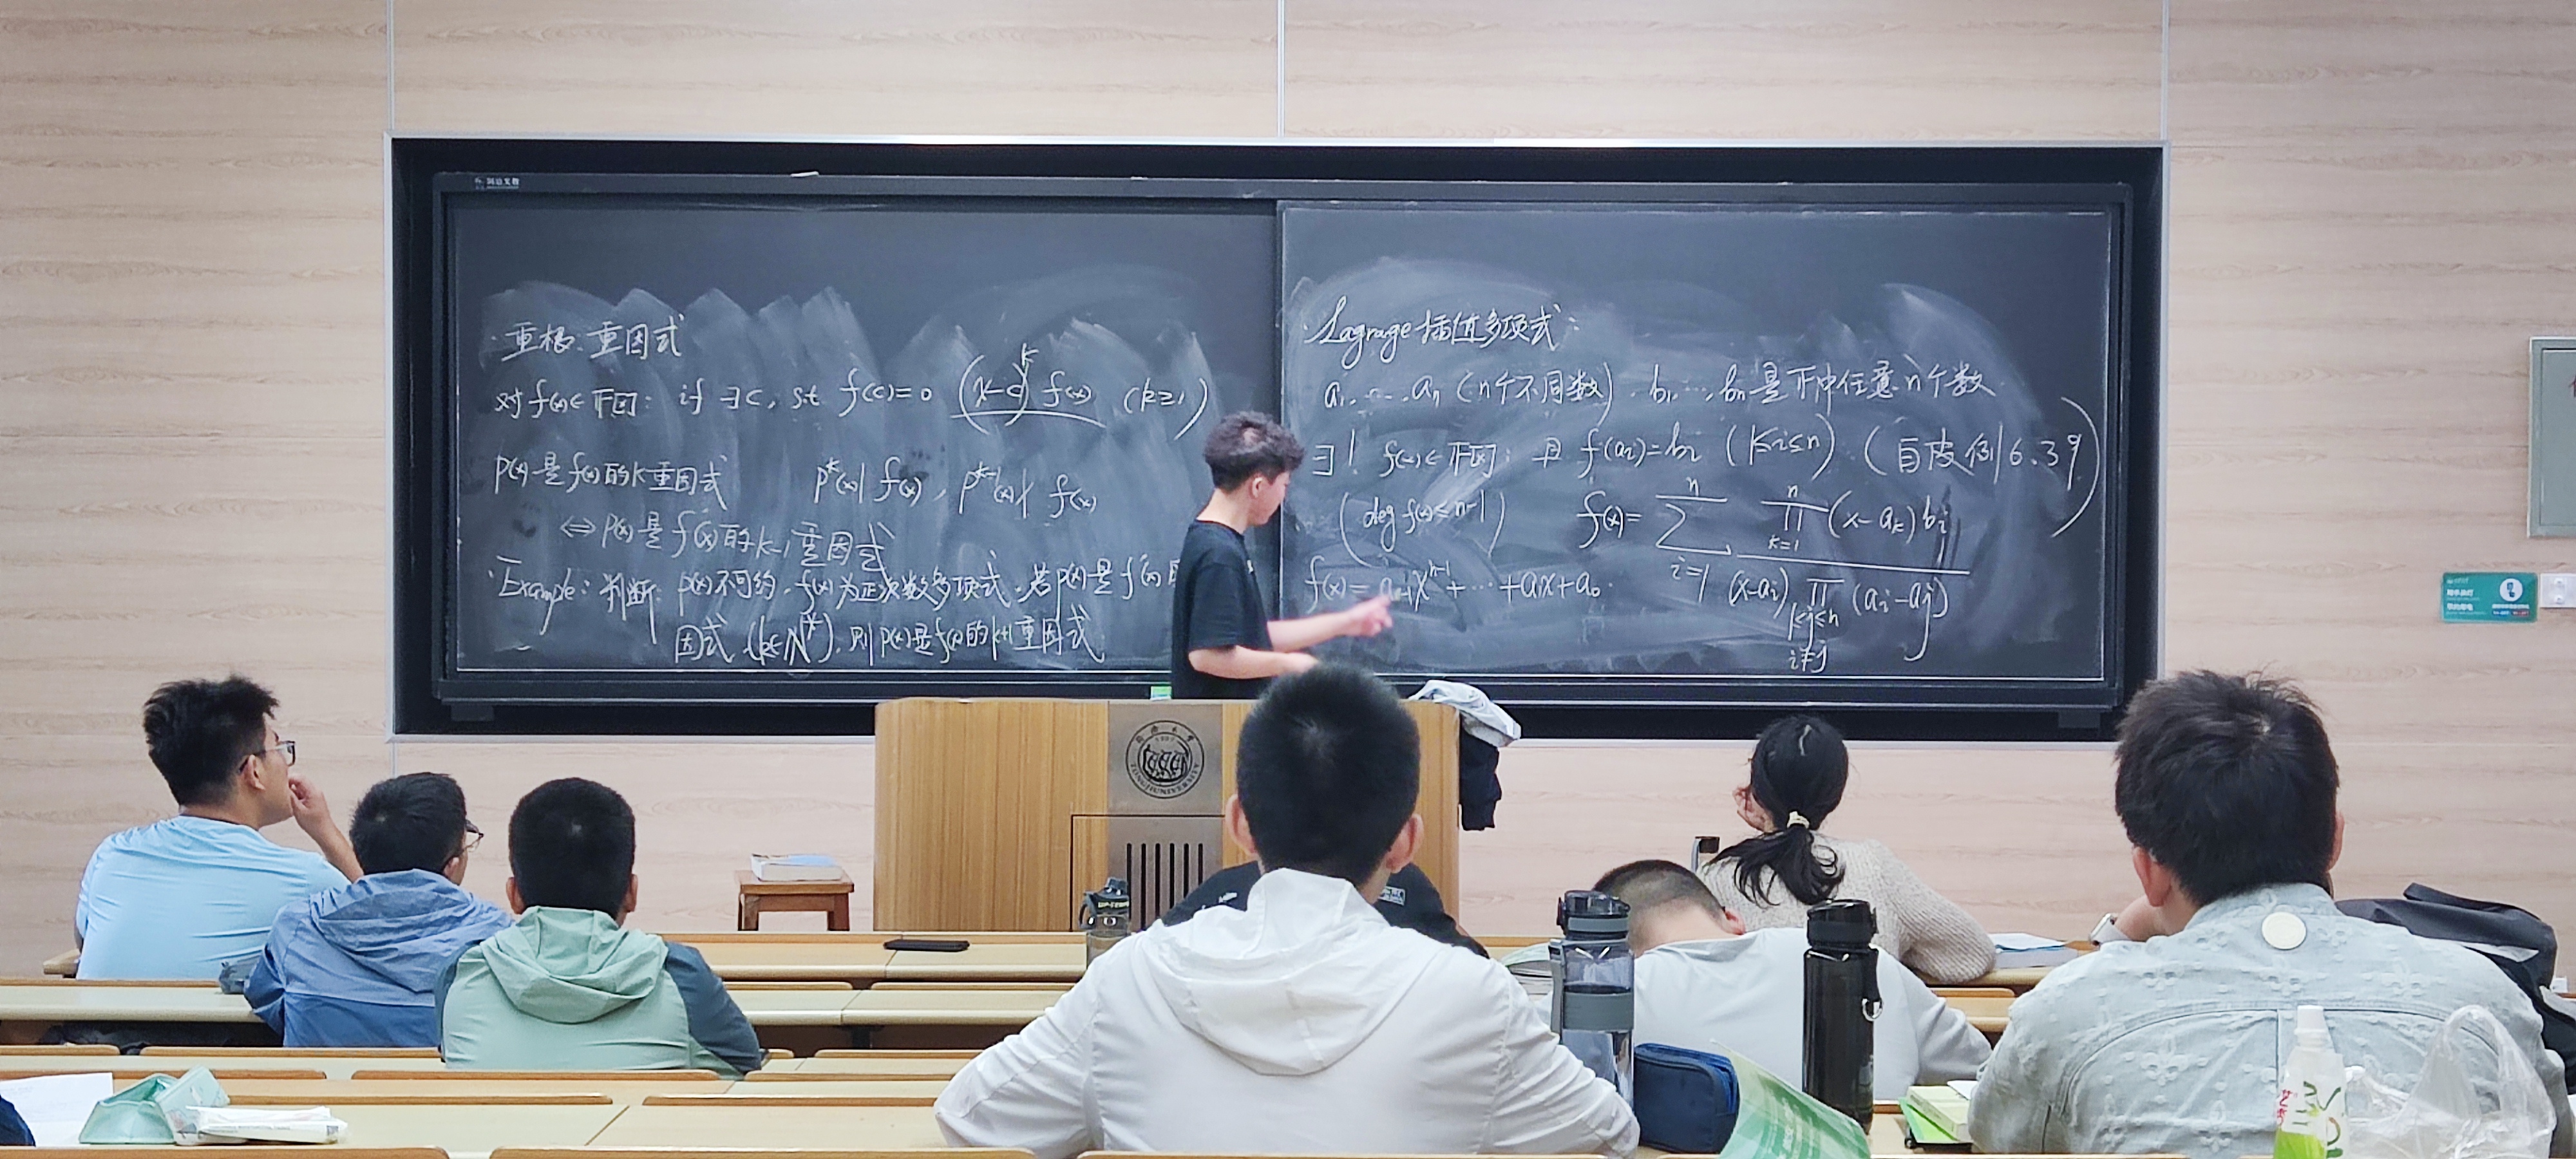 ·重根、重因式
对f(x)∈F[x]: if ∃c, s.t f(c)=0 (x-c)^k f(x) (k≥1)
p(x)是f(x)的k重因式 p^k(x)| f(x), p^{k-1}(x)∤ f(x)
⇔ p(x)是f'(x)的k-1重因式
·Example: 判断: p(x)不可约, f(x)为正次数多项式, 若p(x)是f'(x)
因式 (k∈N*), 则p(x)是f(x)的k+1重因式
·Lagrage插值多项式:
a₁, ..., aₙ (n个不同数), b₁, ..., bₙ是F中任意n个数
∃! f(x)∈F[x], 且 f(aᵢ)=bᵢ (1≤i≤n) (白皮例6.39)
(deg f(x)≤n-1) f(x)= ∑_{i=1}^{n} ∏_{k=1}^{n}(x-aₖ)bᵢ / (x-aᵢ)∏_{1≤j≤n, i≠j}(aᵢ-aⱼ)
f(x)= aₙ₋₁x^{n-1}+...+a₁x+a₀.
TONGJI UNIVERSITY